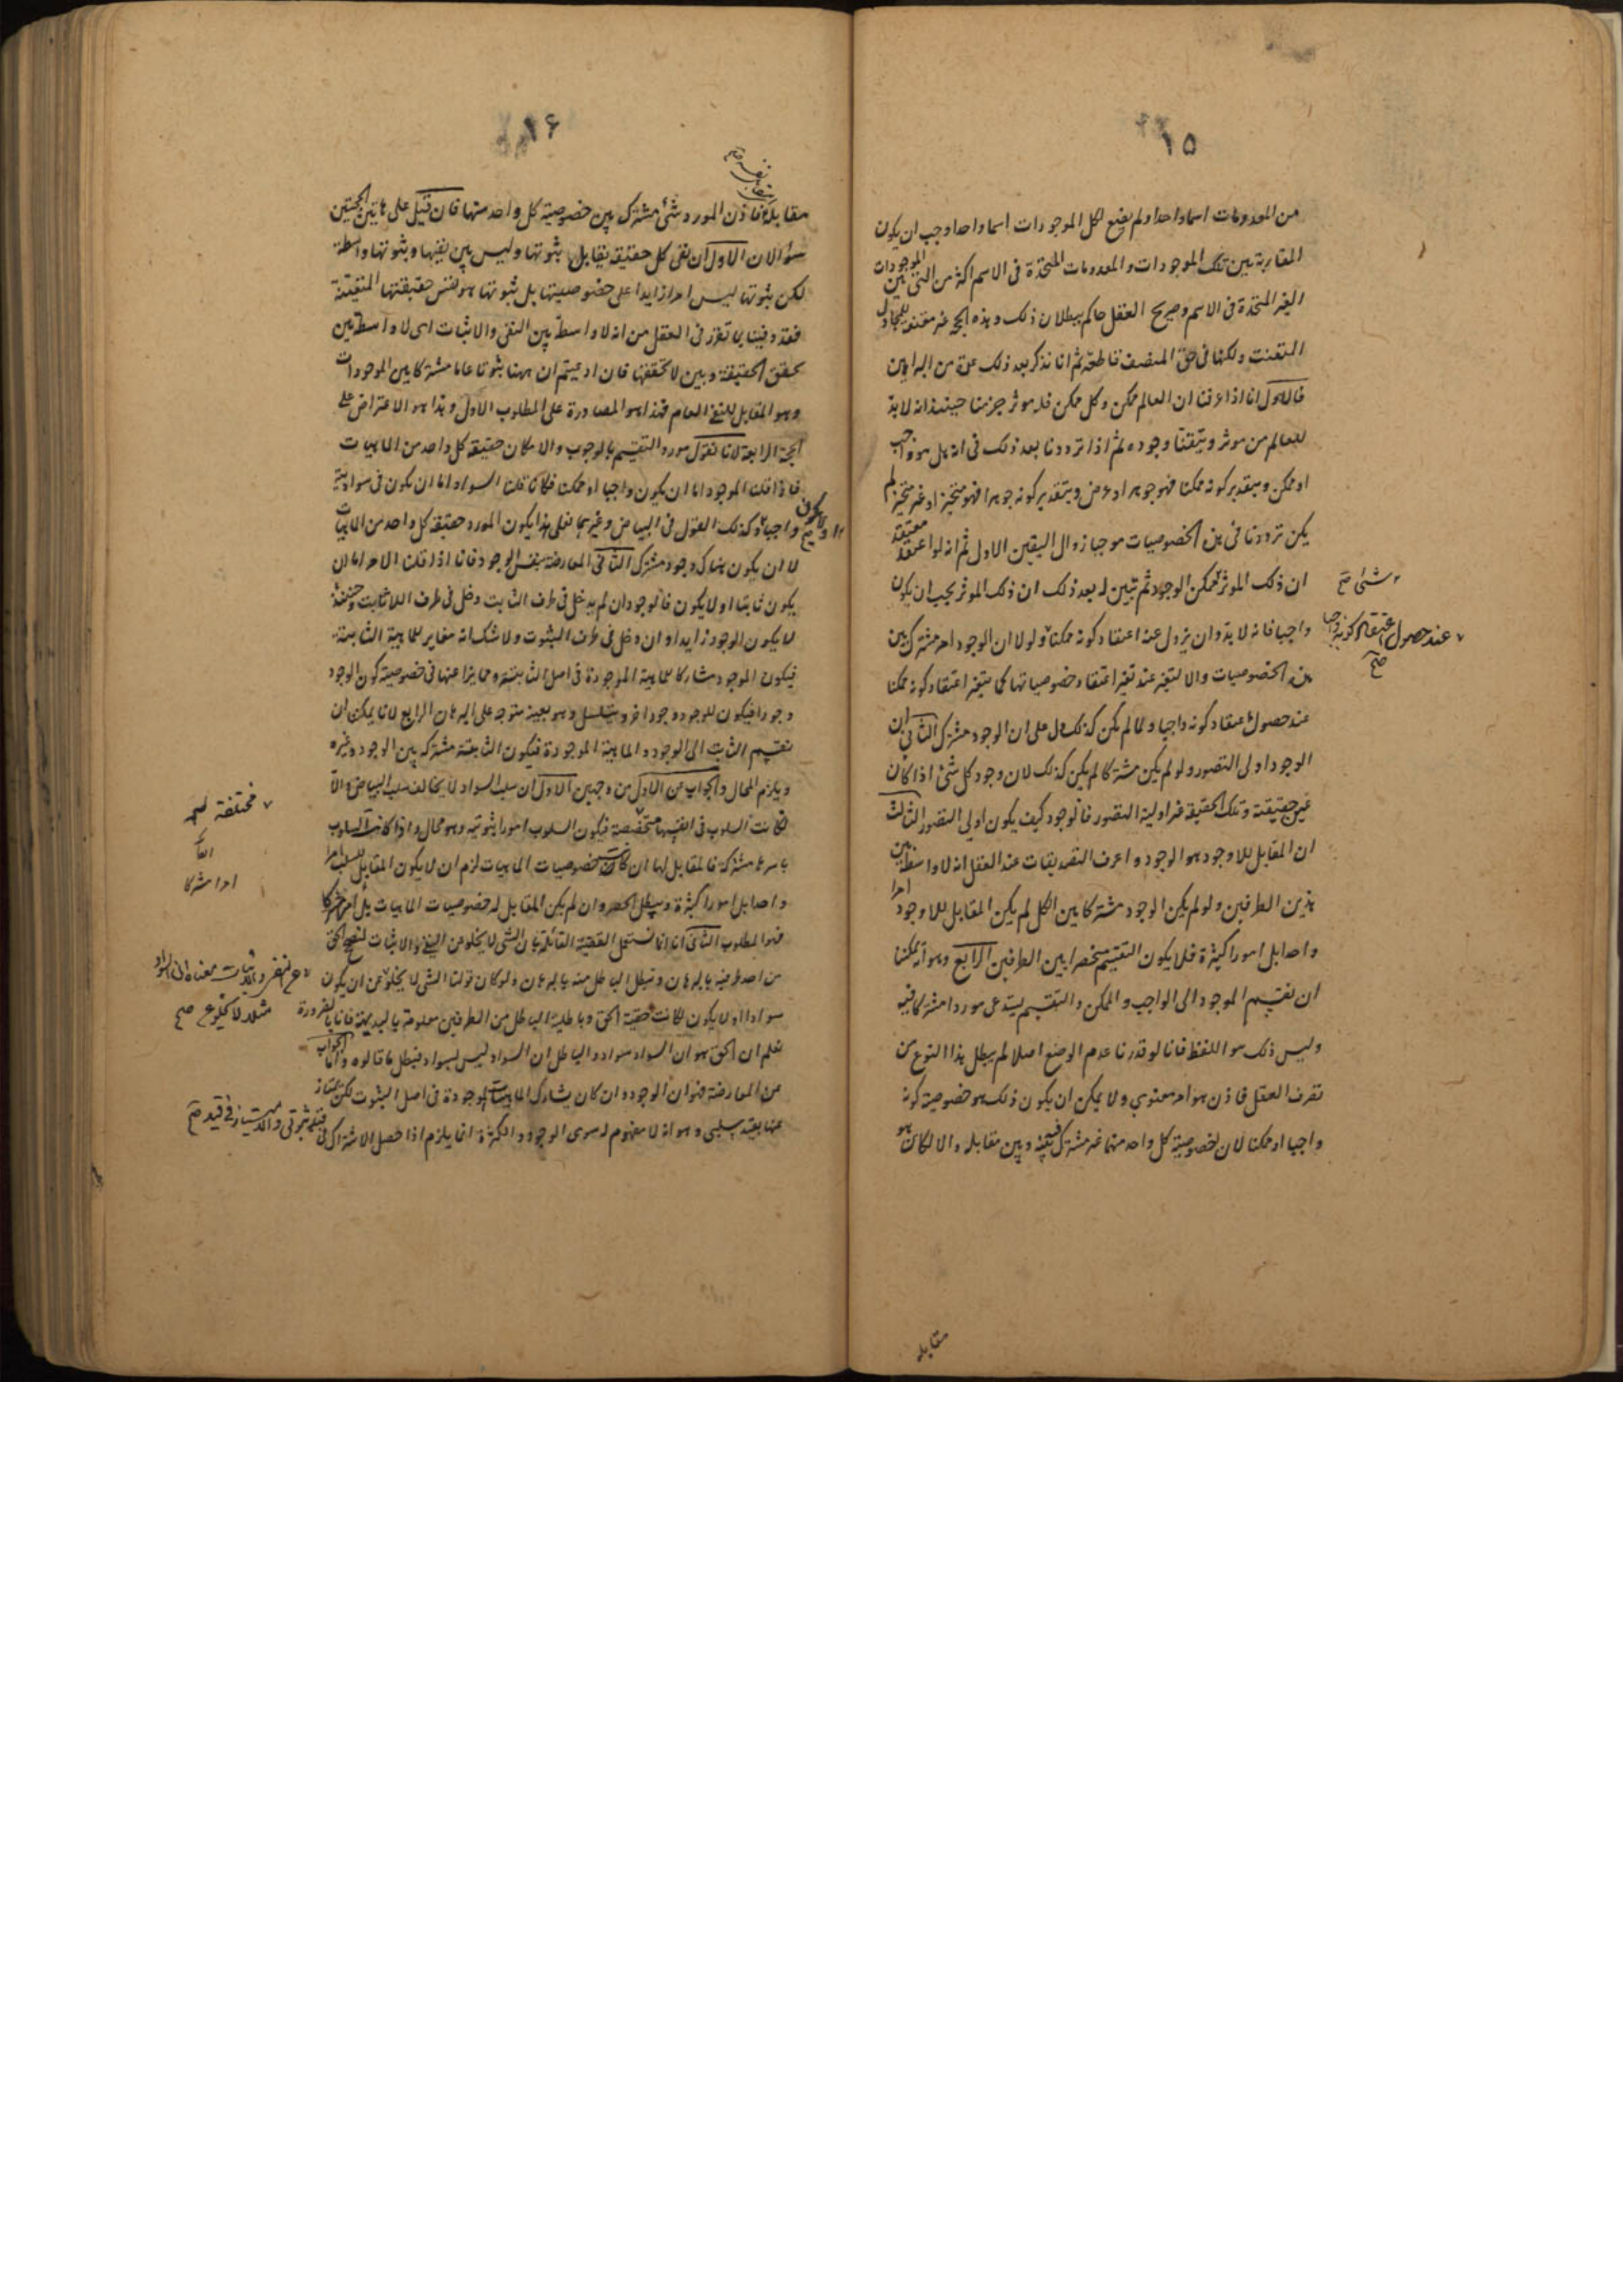 ١٥
من المعدومات اسما واحدا ولم يضع لكل الموجودات اسما واحدا وجب ان يكون
المقاربة بين تلك الموجودات والمعدومات المتحدة فى الاسم اكثر من التى بين الموجودات
الغير المتحدة فى الاسم وصريح العقل حاكم ببطلان ذلك وهذه الحجة غير مقنعة للمجادل
المتعنت ولكنها فى حق المنصف قاطعة ثم انا نذكر بعد ذلك عدة من البراهين
فالاول انا اذا عرفنا ان العالم ممكن وكل ممكن فله موثر جزمنا حينئذ انه لا بد
للعالم من موثر وتيقنا وجوده ثم اذا ترددنا بعد ذلك فى انه هل هو واجب
او ممكن وبتقدير كونه ممكنا فهو جوهر او عرض وبتقدير كونه جوهرا فهو متحيز او غير متحيز لم
يكن ترددنا فى هذه الخصوصيات موجبا زوال اليقين الاول ثم انه لو اعتقد معتقد
ان ذلك الموثر ممكن الوجود ثم تبين له بعد ذلك ان ذلك الموثر يجب ان يكون
واجبا فانه لا بد وان يزول عنه اعتقاد كونه ممكنا ولولا ان الوجود امر مشترك بين
هذه الخصوصيات والا لتغير عند تغير اعتقاد خصوصياتها كما يتغير اعتقاد كونه ممكنا
عند حصول اعتقاد كونه واجبا ولما لم يكن كذلك دل على ان الوجود مشترك الثانى ان
الوجود اولى التصور ولو لم يكن مشتركا لم يكن كذلك لان وجود كل شئ اذا كان
عين حقيقته وتلك الحقيقة غير اولية التصور فالوجود كيف يكون اولى التصور الثالث
ان المقابل للاوجود هو الوجود واعرف التصديقات عند العقل انه لا واسطة بين
هذين الطرفين ولو لم يكن الوجود مشتركا بين الكل لم يكن المقابل للاوجود امرا
واحدا بل امورا كثيرة فلا يكون التقسيم منحصرا بين الطرفين الرابع وهو انه يمكننا
ان نقسم الموجود الى الواجب والممكن والتقسيم يستدعى موردا مشتركا فيه
وليس ذلك هو اللفظ فانا لو قدرنا عدم الوضع اصلا لم يبطل هذا النوع من
تصرف العقل فاذن هو امر معنوى ولا يمكن ان يكون ذلك هو خصوصية كونه
واجبا او ممكنا لان لخصوصية كل واحد منهما غير مشترك فيه بينه وبين مقابله والا لكان هو
شئ صح
عند حصول اعتقاد كونه واجبا
صح
مقابله
١۶
مقابله فاذن المورد شئ مشترك بين خصوصية كل واحد منها فان قيل على هاتين الحجتين
سؤالان الاول ان نفى كل حقيقة يقابل ثبوتها وليس بين نفيها وثبوتها واسطة
لكن ثبوتها ليس امرا زايدا على خصوصيتها بل ثبوتها هو نفس حقيقتها المتعينة
فقد وفينا بما تقرر فى العقل من انه لا واسطة بين النفى والاثبات اى لا واسطة بين
تحقق الحقيقة وبين لا تحققها فان ادعيتم ان ههنا ثبوتا عاما مشتركا بين الموجودات
وهو المقابل للنفى العام فهذا هو المصادرة على المطلوب الاول وهذا هو الاعتراض على
الحجة الرابعة لانا نقول مورد التقسيم بالوجوب والامكان حقيقة كل واحد من الماهيات
فاذا قلت الموجود اما ان يكون واجبا او ممكنا فكانا قلنا السواد اما ان يكون فى سواديته
واجبا وكذلك القول فى البياض وغيرهما فعلى هذا يكون المورد حقيقة كل واحد من الماهيات
لا ان يكون هناك وجود مشترك الثانى المعارضة بنفس الوجود فانا اذا قلنا الامر اما ان
يكون ثابتا او لا يكون فالوجود ان لم يدخل فى طرف الثابت دخل فى طرف اللاثابت وحينئذ
لا يكون الوجود زايدا وان دخل فى طرف الثبوت ولا شك انه مغاير للماهية الثابتة
فيكون الموجود مشاركا للماهية الموجودة فى اصل الثابتية وممايزا عنها فى خصوصية كون الوجود
وجودا فيكون للوجود وجود اخر ويتسلسل وهو بعينه متوجه على البرهان الرابع لانا يمكن ان
نقسم الثابت الى الوجود والماهية الموجودة فيكون الثابتية مشتركة بين الوجود وغيره
ويلزم المحال والجواب عن الاول من وجهين الاول ان سلب السواد لا يخالف سلب البياض والا
لكانت السلوب فى انفسها متخصصة فيكون السلوب امورا ثبوتية وهو محال واذا كانت السلوب
باسرها مشتركة فالمقابل لها ان كانت خصوصيات الماهيات لزم ان لا يكون المقابل للسلب امرا
واحدا بل امورا كثيرة ويبطل الحصر وان لم يكن المقابل له خصوصيات الماهيات بل امرا مشتركا
فهو المطلوب الثانى انا انما نستعمل القضية القائلة بان الشى لا يخلو عن النفى والاثبات لنصحح الحق
من احد طرفيه بالبرهان ونبطل الباطل منه بالبرهان ولو كان قولنا الشى لا يخلو عن ان يكون
سوادا او لا يكون لكانت حقية الحق وباطلية الباطل من الطرفين معلومة بالبديهة فانا بالضرورة
نعلم ان الحق هو ان السواد سواد والباطل ان السواد ليس بسواد فبطل ما قالوه واما الجواب
عن المعارضة فهو ان الوجود وان كان يشارك الماهيات الموجودة فى اصل الثبوت لكن يمتاز
عنها بقيد سلبى وهو انه لا مفهوم له سوى الوجود والكثرة انما يلزم اذا حصل الاشتراك فى
ولا يكون
مختلفة
امرا مشتركا
مثلا لا يخلو عن صح